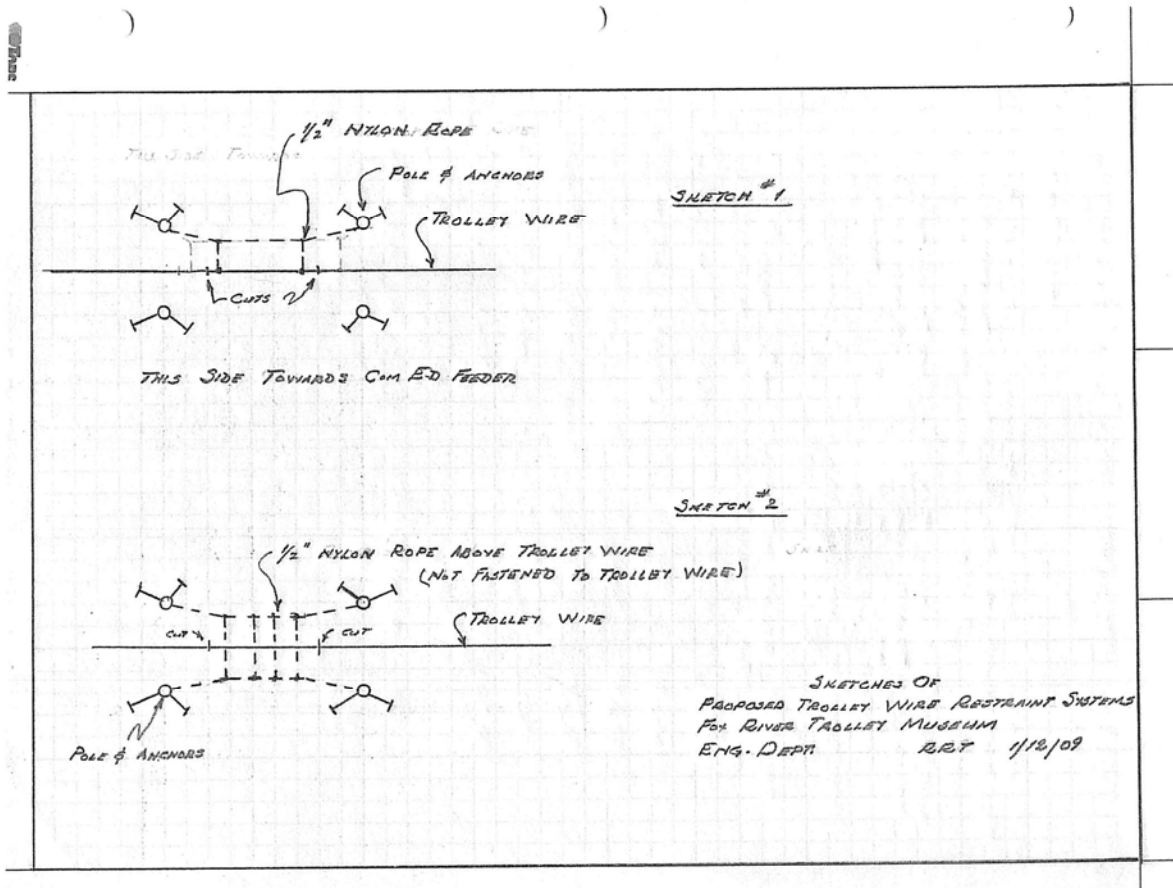 1/2" NYLON ROPE
THE SIDE TOWARDS
POLE & ANCHORS
SKETCH #1
TROLLEY WIRE
CUTS
THIS SIDE TOWARDS COM ED FEEDER
SKETCH #2
1/2" NYLON ROPE ABOVE TROLLEY WIRE
(NOT FASTENED TO TROLLEY WIRE)
TROLLEY WIRE
CUT
CUT
POLE & ANCHORS
SKETCHES OF
PROPOSED TROLLEY WIRE RESTRAINT SYSTEMS
FOX RIVER TROLLEY MUSEUM
ENG. DEPT. RRT 1/12/09